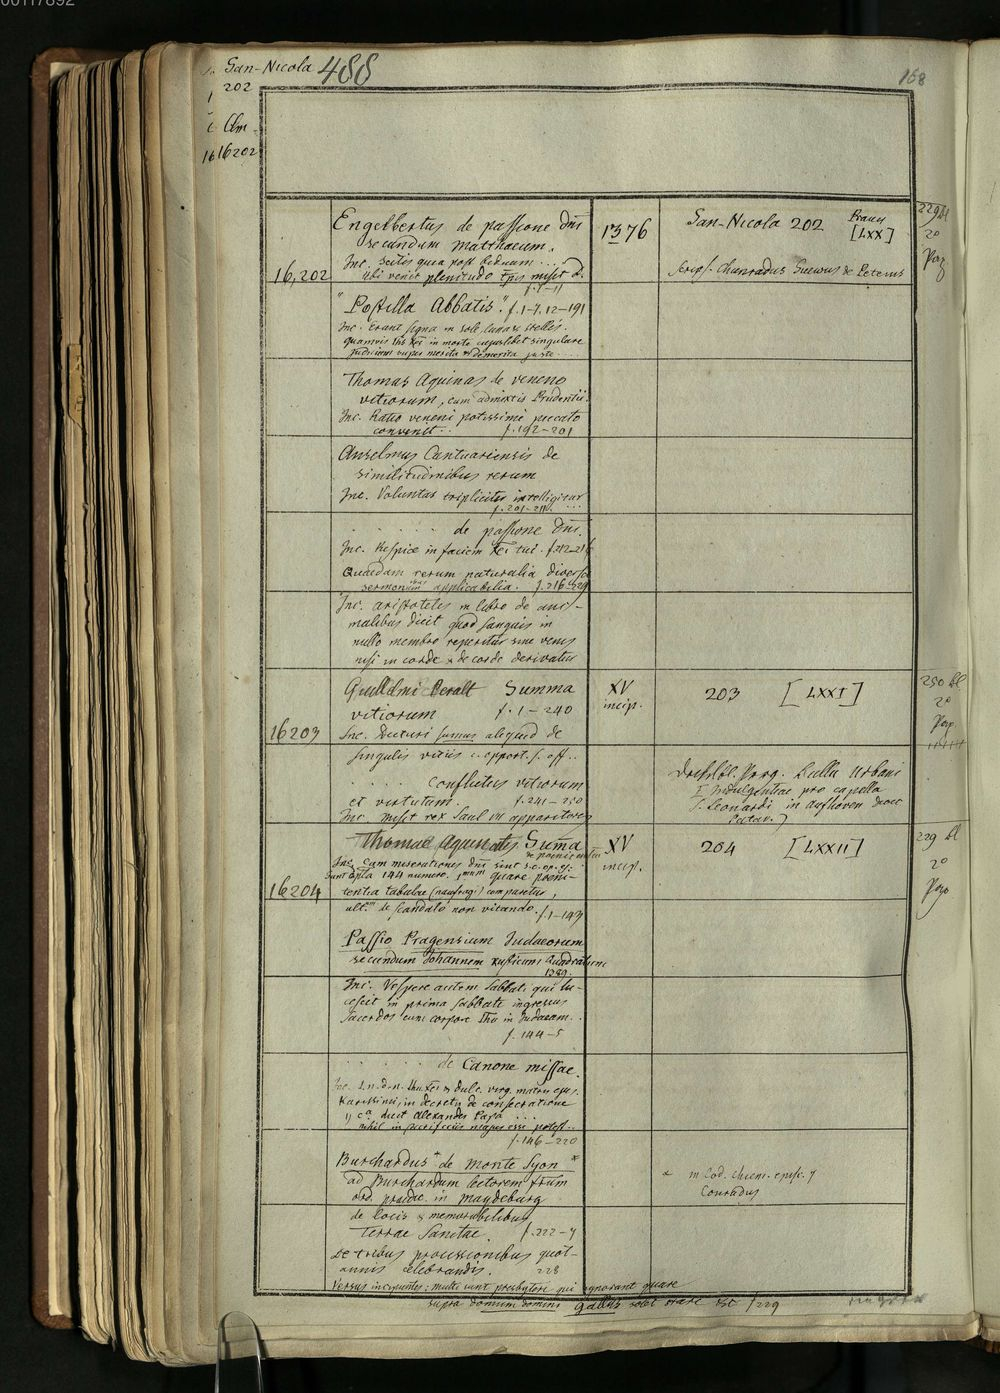 00117892
San-Nicola 488
202
158
Clm
16202
Engelbertus de passione dni 1376 San-Nicola 202 [LXX] 229 bl
secundum Matthaeum. 2°
Inc. Scitis quia post biduum ... Pap
16,202 ubi venit plenitudo tpis misit d.
f. 7-11
"Postilla Abbatis". f. 1-7. 12-191
Inc. Erunt signa in sole luna & stellis.
quamvis in morte cujuslibet singulare
judicium merita & demerita juste
Thomas Aquinas de veneno
vitiorum, cum admixtis Prudentii.
Inc. Ratio veneni potissime peccato
convenit.. f. 192-201
Anselmus Cantuariensis de
similitudinibus rerum
Inc. Voluntas tripliciter intelligitur
f. 201-211 ...
de passione dni.
Inc. Respice in faciem Xti tui. f. 212-216
Quaedam rerum naturalia diversis
sermonibus applicabilia. f. 216-229
Inc. Aristoteles in libro de ani-
malibus dicit quod sanguis in
nullo membro reperitur sine venis
nisi in corde & de corde derivatur
Guillelmi Peralt Summa XV 203 [LXXI] 250 bl
vitiorum f. 1-240 incip. 2°
16203 Inc. Dicturi sumus aliquid de Pap
singulis vitiis c. opport. s. off..
conflictus vitiorum
et virtutum. f. 241-250
Inc. Misit rex Saul apparitores
Bulla Urbani
Indulgentiae pro capella
S. Leonardi in Aufhoven dioec
Patav.)
Thomae Aquinatis Suma XV 204 [LXXII] 229 bl
incip. 2°
Inc. Cum miserationes dni sint s. o. op. ej.
16204 sunt cpla 144 numero. 1mum quare poeni-
tentia tabulae (naufragi) comparetur,
ult.m de scandalo non vitando. f. 1-143
Passio Pragensium Judaeorum
secundum Johannem rusticum Quadratum
1389.
Inc. Vespere autem Sabbati qui lu-
cescit in prima Sabbati ingressus
sacerdos cum corpore Ihu in Judaeam.
f. 144-5
de Canone missae.
karissimi, in decretis de consecratione
dicit Alexander Papa
nihil in sacrificiis majus esse potest..
f. 146-220
Burchardus * de monte Syon *
ad Burchardum lectorem frum
ord. praedic. in Magdeburg
* in Cod. Chiem. episc. 7
Conradus
de locis & memorabilibus
Terrae Sanctae. f. 222-7
De tribus processionibus quot-
annis celebrandis. 228
Versus incipientes: multi sunt presbyteri qui ignorant quare
supra domum domini gallus solet stare etc f 229